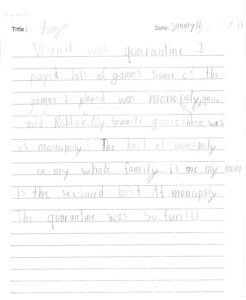 Title: Date: January 4
was quarantine I
played lots of games some of the
games I played was monopoly, uno,
and Roblox. My favorite game there was
is monopoly. The best at monopoly
in my whole family is me my mom
is the secound best At monopoly
The quarantine was so fun!!!